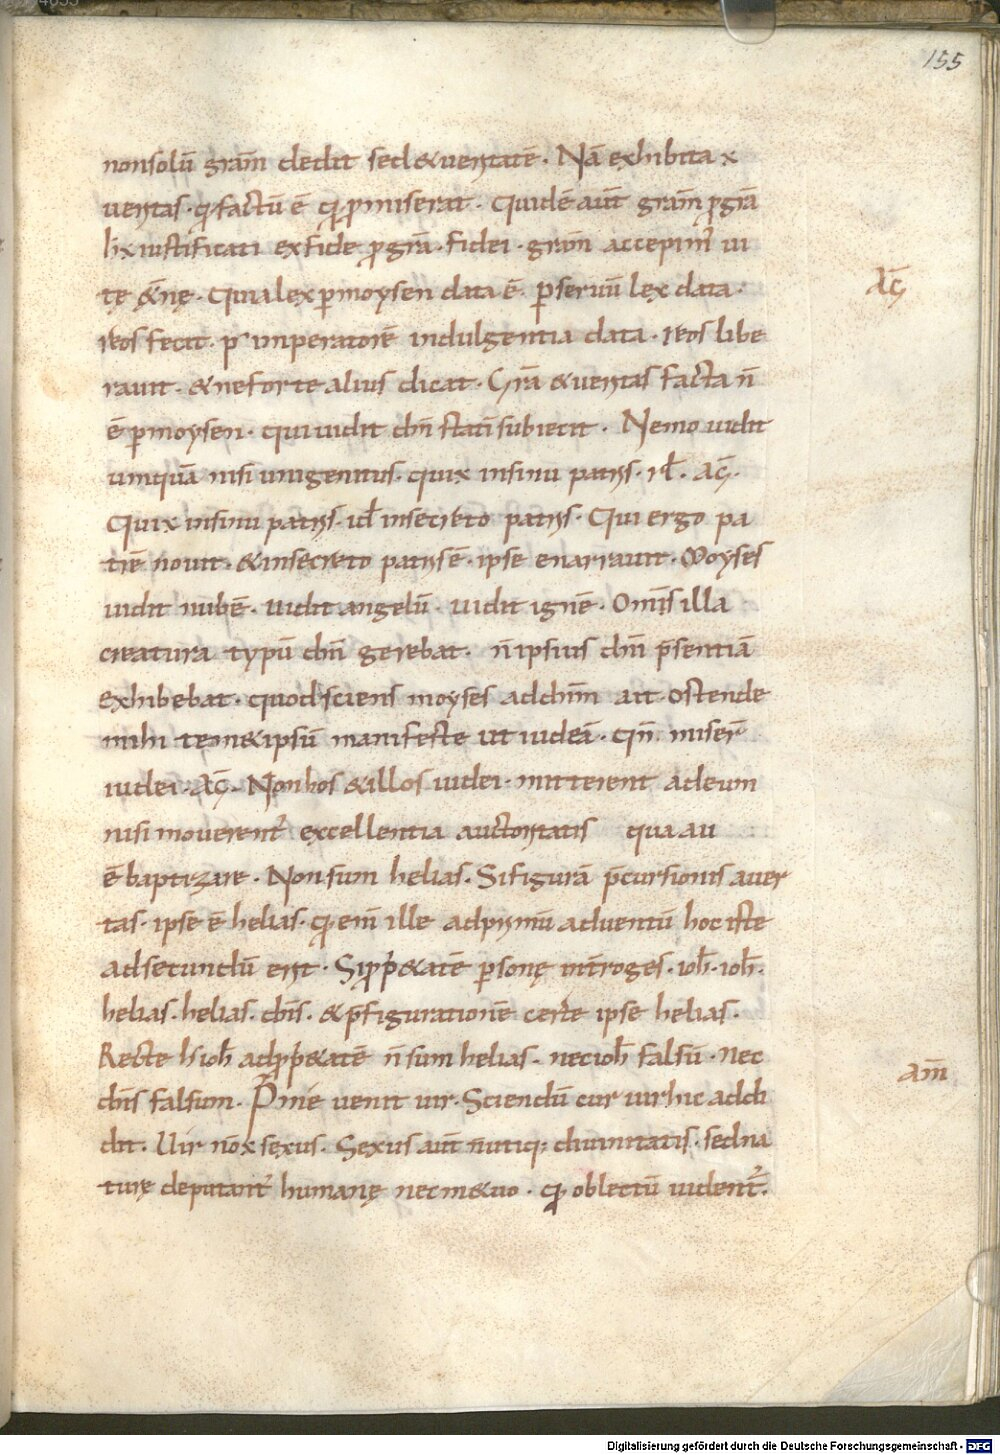 155
nonsolū gram̄ dedit sed &ueritatē. Nā exhibita x
ueritas. q̨ factū ē q̨ p̱miserat. Quidē aut̄ gram̄ ꝓ gr̄a
iustificati exfide ꝓ gr̄a. fidei. gram̄ accepim̄ ui
tę &n̄ę. Quia lex ꝑmoysen data ē. ꝑ seruū lex data.
AḠ
reos fecit. ꝑ imperatorē indulgentia data. reos libe
rauit. &neforte alius dicat. Gr̄a &ueritas facta n̄
ē ꝑmoysen. qui uidit dn̄i statī subiecit. Nemo uidit
umquā nisi unigenitus. quix insinu patris. rl̄. AḠ.
Quix insinu patris. id̄ insecreto patris. Qui ergo pa
trē nouit. &insecreto patris ē. ipse enarrauit. Moyses
uidit nubē. uidit angelū. uidit ignē. Omīs illa
creatura typū dn̄i gerebat. n̄ ipsius dn̄i p̄sentiā
exhibebat. quod sciens moyses ad dn̄m ait. ostende
mihi tem&ipsū manifeste ut uideā. Qn̄ miser̄
iudei. AḠ. Non hos &illos iudei. mitterent adeum
nisi mouerent̄ excellentia auctoritatis qua au
ē baptizare. Non sum helias. Si figurā p̄cursionis auer
tas. ipse ē helias. q̨ enī ille adprimū aduentū hoc iste
adsecundū erit. Si ꝓp&atē ꝑsonę int̄roges. ioh̄. ioh̄.
helias. helias. dn̄s. &p̄figurationē certe ipse helias.
Recte ioh̄ adꝓp&atē n̄ sum helias. nec ioh̄ falsū. nec
am̄
dn̄s falsum. P̱ me uenit uir. Sciendū cur uir hic addi
dit. Uir nō x sexus. Sexus aut̄ n̄ utiq; diuinitatis. sed na
turę deputant̄ humanę nec in&uo. q̨ oblectū uident̄.
Digitalisierung gefördert durch die Deutsche Forschungsgemeinschaft - DFG